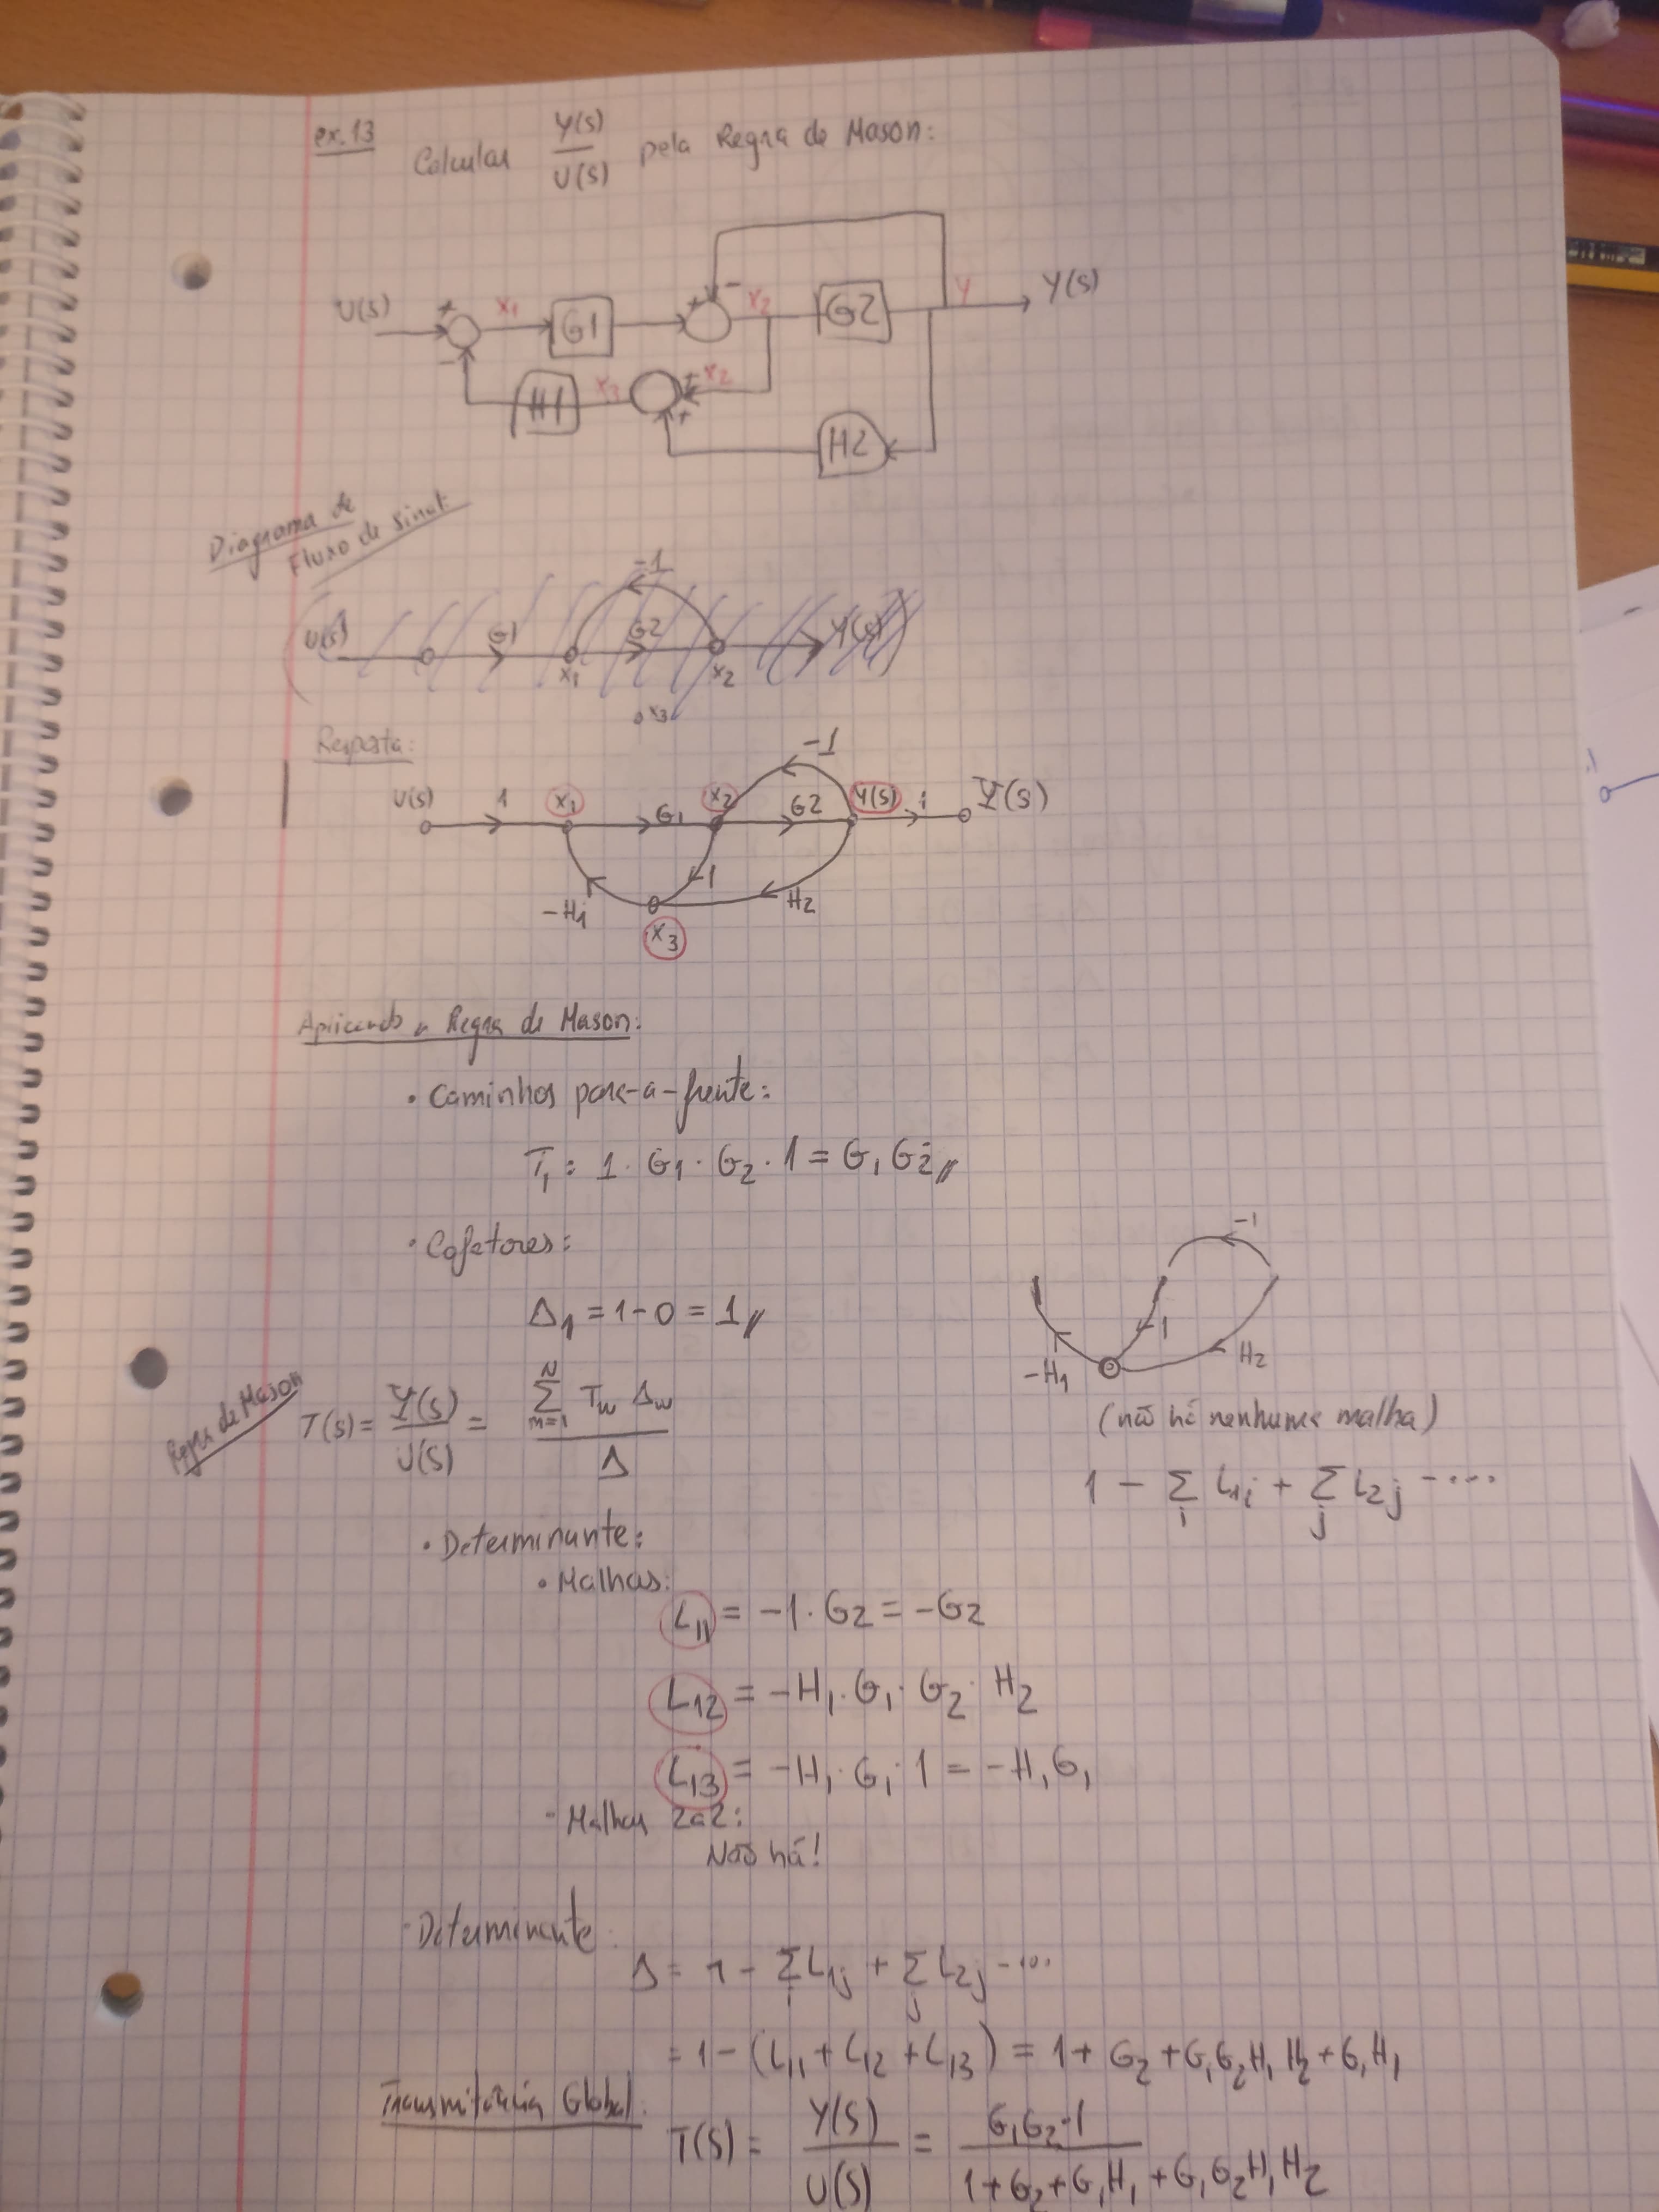 ex.13 Calcular Y(s)/U(s) pela Regra de Mason:
U(S) + - X1 G1 + - X2 G2 Y Y(S)
H1 X3 + X2 +
H2
Diagrama de
Fluxo de sinal:
-1
U(S) G1 G2 Y(s)
X1 X2
X3
Resposta:
-1
U(S) 1 X1 G1 X2 G2 Y(S) 1 Y(S)
-H1 1 H2
X3
Aplicando a Regra de Mason:
• Caminhos para-a-frente:
T1 = 1 · G1 · G2 · 1 = G1 G2 //
• Cofatores:
Δ1 = 1 - 0 = 1 //
-1
-H1 1 H2
(não há nenhuma malha)
1 - Σi L1i + Σj L2j - ....
Regra de Mason T(s) = Y(s)/U(S) = Σ N m=1 Tw Δw / Δ
• Determinante:
• Malhas:
L11 = -1 · G2 = -G2
L12 = -H1 · G1 · G2 · H2
L13 = -H1 · G1 · 1 = -H1G1
- Malhas 2a2:
Não há!
- Determinante:
Δ = 1 - Σi L1j + Σj L2j - ...
= 1 - (L11 + L12 + L13) = 1 + G2 + G1G2H1H2 + G1H1
Transmitância Global:
T(S) = Y(S)/U(S) = G1G2·1 / 1+G2+G1H1+G1G2H1H2